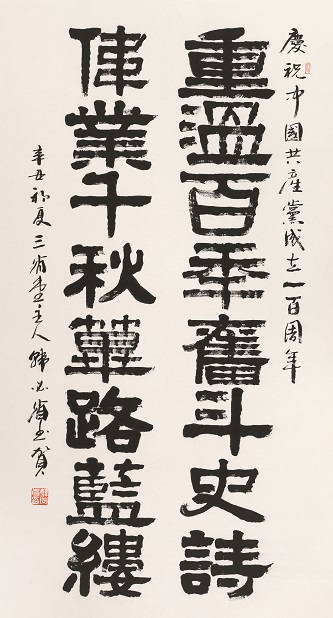 慶祝中國共產黨成立一百周年
重溫百年奮斗史詩
偉業千秋蓽路藍縷
辛丑初夏三省書屋主人韓必省書賀